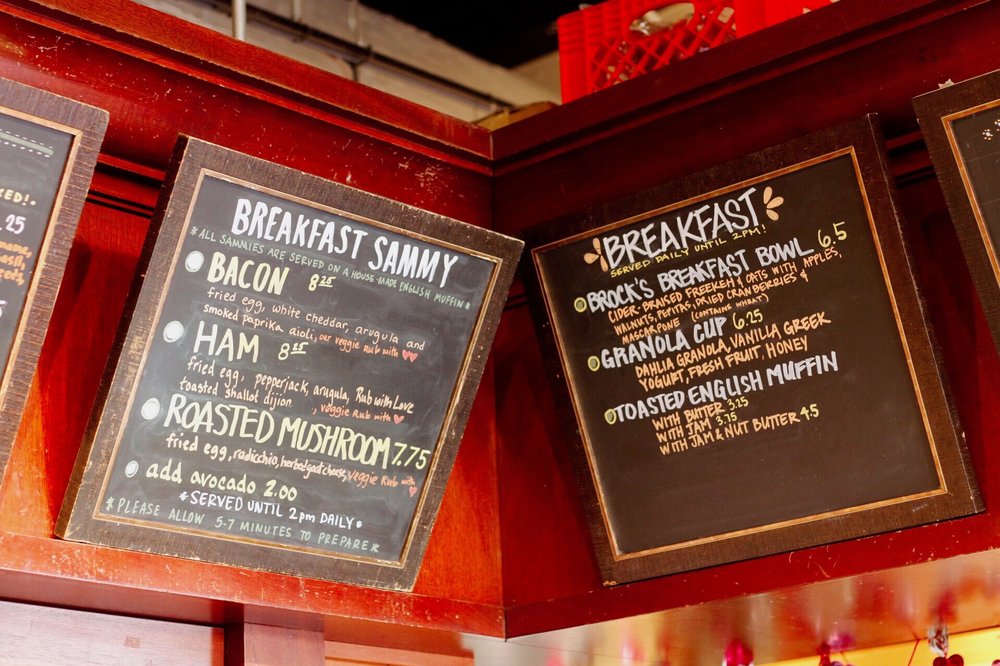 KED!.
.25
BREAKFAST SAMMY
*ALL SAMMIES ARE SERVED ON A HOUSE-MADE ENGLISH MUFFIN*
BACON 8.25
fried egg, white cheddar, arugula and
smoked paprika aioli, our veggie rub with ♥♥
HAM 8.25
fried egg, pepperjack, arugula, Rub with Love
toasted shallot dijon, veggie Rub with ♥
ROASTED MUSHROOM 7.75
fried egg, radicchio, herbed goat cheese, veggie Rub with ♥
add avocado 2.00
*SERVED UNTIL 2pm DAILY*
*PLEASE ALLOW 5-7 MINUTES TO PREPARE*
BREAKFAST
SERVED DAILY UNTIL 2PM!
BROCK'S BREAKFAST BOWL 6.5
CIDER-BRAISED FREEKEH & OATS WITH APPLES,
WALNUTS, PEPITAS, DRIED CRANBERRIES &
MASCARPONE (CONTAINS WHEAT)
GRANOLA CUP 6.25
DAHLIA GRANOLA, VANILLA GREEK
YOGURT, FRESH FRUIT, HONEY
TOASTED ENGLISH MUFFIN
WITH BUTTER 3.25
WITH JAM 3.75
WITH JAM & NUT BUTTER 4.5